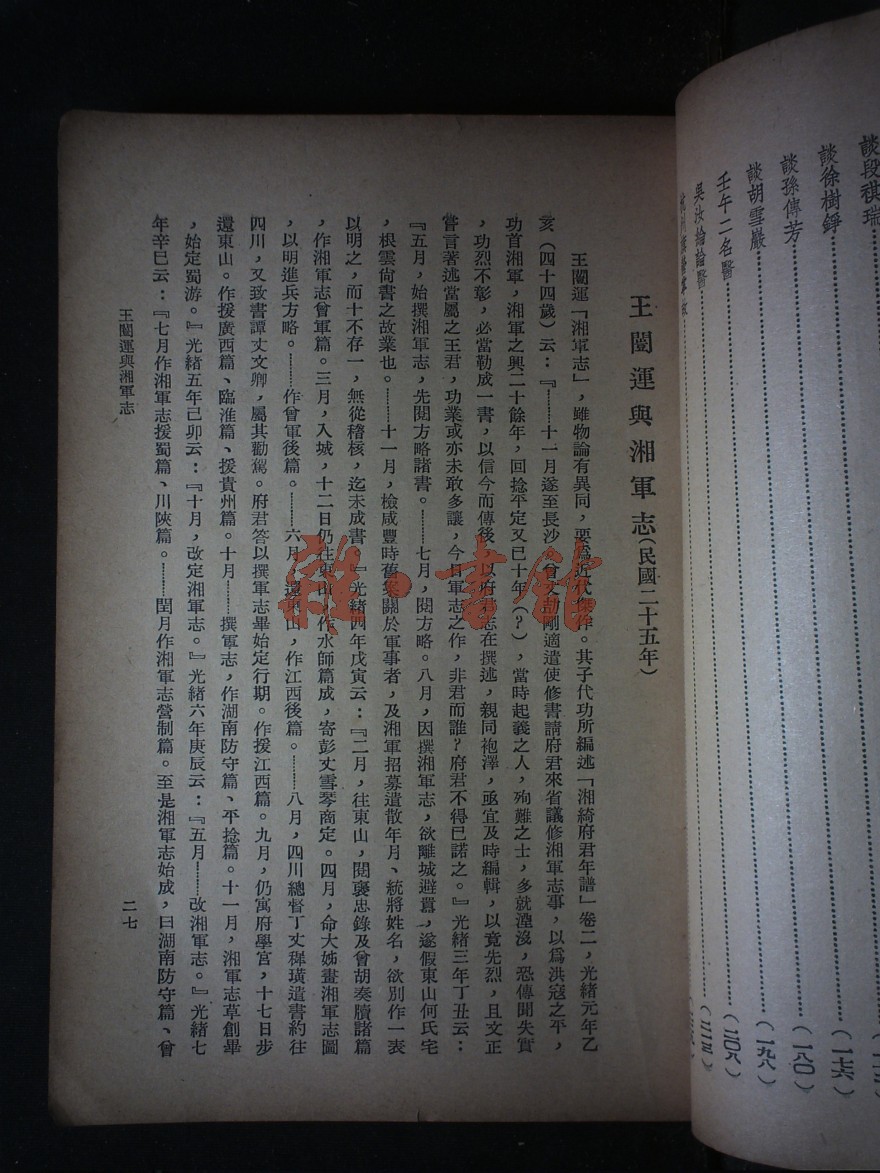 談段祺瑞
談徐樹錚 (一七六)
談孫傳芳 (一八〇)
談胡雪巖 (一九八)
壬午二名醫 (二〇八)
吳汝綸論醫
王闓運與湘軍志(民國二十五年)
王闓運「湘軍志」,雖物論有異同,要爲近代傑作。其子代功所編述「湘綺府君年譜」卷二,光緒元年乙
亥(四十四歲)云:『……十一月遂至長沙,曾丈劼剛適遣使修書請府君來省議修湘軍志事,以爲洪寇之平,
功首湘軍,湘軍之興二十餘年,回捻平定又已十年(?),當時起義之人,殉難之士,多就湮沒,恐傳聞失實
,功烈不彰,必當勒成一書,以信今而傳後,以府君志在撰述,親同袍澤,亟宜及時編輯,以竟先烈,且文正
嘗言著述當屬之王君,功業或亦未敢多讓,今日軍志之作,非君而誰?府君不得已諾之。』光緒三年丁丑云:
『五月,始撰湘軍志,先閱方略諸書。……七月,閱方略。八月,因撰湘軍志,欲離城避囂,遂假東山何氏宅
,根雲尚書之故業也。……十一月,檢咸豐時舊案關於軍事者,及湘軍招募遣散年月、統將姓名,欲別作一表
以明之,而十不存一,無從稽核,迄未成書。』光緒四年戊寅云:『二月,往東山,閱褒忠錄及曾胡奏牘諸篇
,作湘軍志曾軍篇。三月,入城,十二日仍往東山,作水師篇成,寄彭丈雪琴商定。四月,命大姊畫湘軍志圖
,以明進兵方略。……作曾軍後篇。……六月,還東山,作江西後篇。……八月,四川總督丁丈穉璜遣書約往
四川,又致書譚丈文卿,屬其勸駕。府君答以撰軍志畢始定行期。作援江西篇。九月,仍寓府學宮,十七日步
還東山。作援廣西篇、臨淮篇、援貴州篇。十月……撰軍志,作湖南防守篇、平捻篇。十一月,湘軍志草創畢
,始定蜀游。』光緒五年己卯云:『十月,改定湘軍志。』光緒六年庚辰云:『五月……改湘軍志。』光緒七
年辛巳云:『七月作湘軍志援蜀篇、川陝篇。……閏月作湘軍志營制篇。至是湘軍志始成,曰湖南防守篇、曾
王闓運與湘軍志
二七
雜·書館